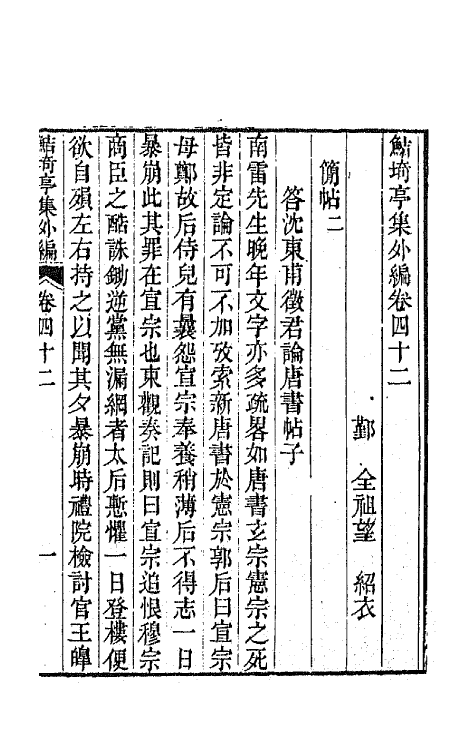 鮚埼亭集外編卷四十二
鄞　全祖望　紹衣
簡帖二
答沈東甫徵君論唐書帖子
南雷先生晚年文字亦多疏畧如唐書玄宗憲宗之死
皆非定論不可不加攷索新唐書於憲宗郭后曰宣宗
母鄭故后侍兒有曩怨宣宗奉養稍薄后不得志一日
暴崩此其罪在宣宗也東觀奏記則曰宣宗追恨穆宗
商臣之酷誅鋤逆黨無漏網者太后慙懼一日登樓便
欲自殞左右持之以聞其夕暴崩時禮院檢討官王皡
鮚埼亭集外編　卷四十二　一